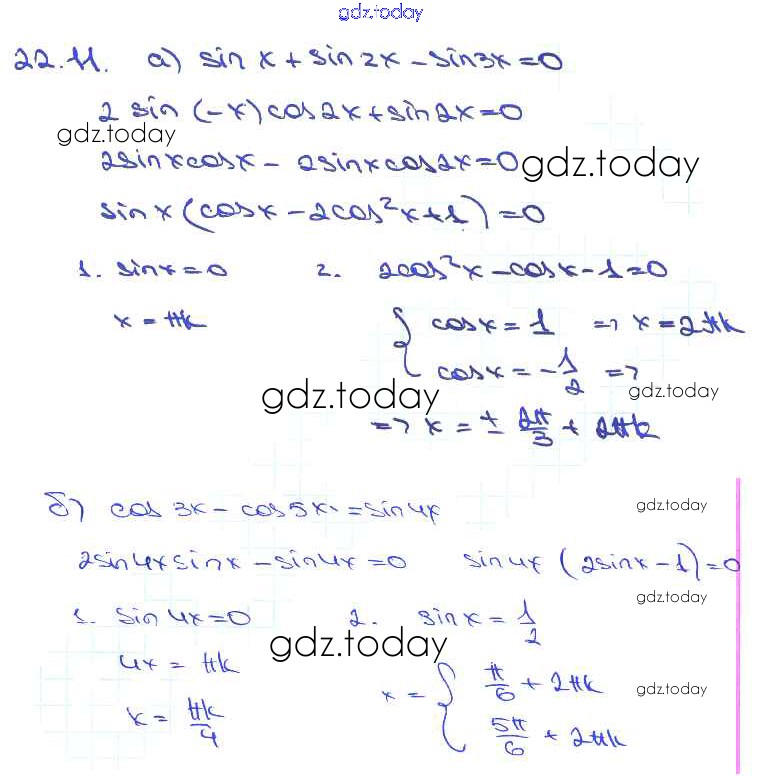 gdz.today
22.11. а) sin x + sin 2x - sin 3x = 0
2 sin (-x) cos 2x + sin 2x = 0
gdz.today
2 sin x cos x - 2 sin x cos 2x = 0 gdz.today
sin x (cos x - 2cos²x + 1) = 0
1. sin x = 0 2. 2cos²x - cos x - 1 = 0
x = πk { cos x = 1 => x = 2πk
cos x = -1/2 =>
gdz.today gdz.today
=> x = ± 2π/3 + 2πk
б) cos 3x - cos 5x = sin 4x gdz.today
2 sin 4x sin x - sin 4x = 0 sin 4x (2 sin x - 1) = 0
gdz.today
1. sin 4x = 0 2. sin x = 1/2
gdz.today
4x = πk x = { π/6 + 2πk gdz.today
x = πk/4 5π/6 + 2πk